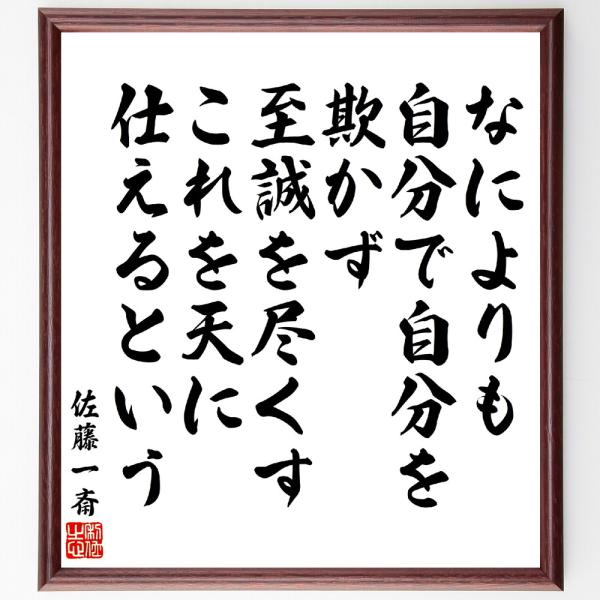 なによりも
自分で自分を
欺かず
至誠を尽くす
これを天に
仕えるという
佐藤一斎